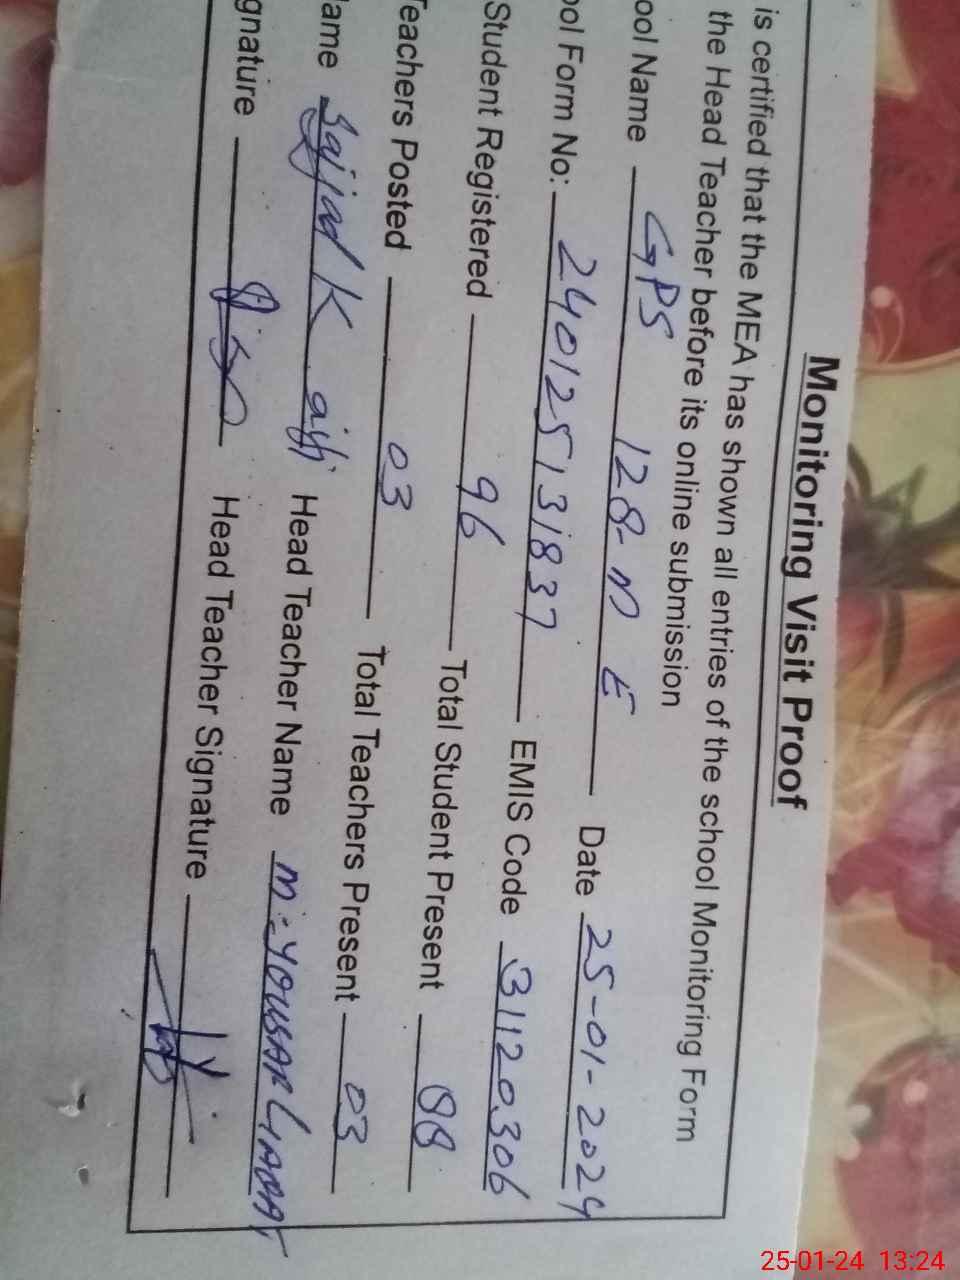 Monitoring Visit Proof
is certified that the MEA has shown all entries of the school Monitoring Form
the Head Teacher before its online submission
ool Name GPS 128-M E Date 25-01-2024
ool Form No: 240125131837 EMIS Code 31120306
Student Registered 96 Total Student Present 88
Teachers Posted 03 Total Teachers Present 03
ame Sajjad K Head Teacher Name M. YOUSAF LIAQAT
gnature Head Teacher Signature
25-01-24 13:24